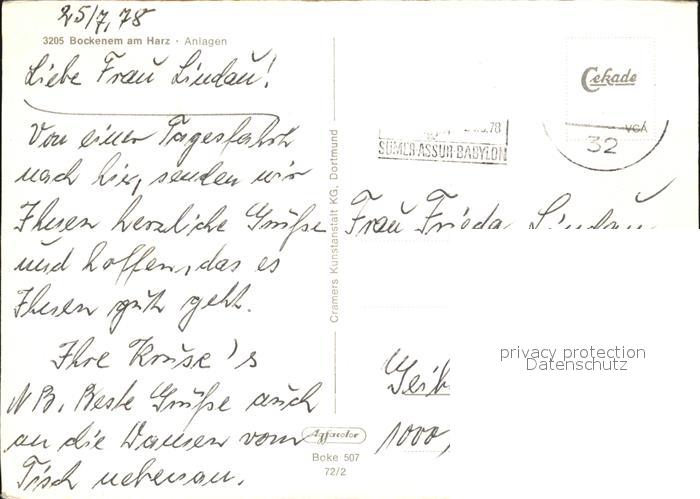 25/7,78
3205 Bockenem am Harz · Anlagen
Liebe Frau Lindau!
Von einer Tagesfahrt
nach hier, senden wir
Ihnen herzliche Grüße
und hoffen, das es
Ihnen gut geht.
Ihre Kruse's
NB. Beste Grüße auch
an die Damen vom
Tisch nebenan.
Cramers Kunstanstalt KG, Dortmund
Cekade
.78
SUMER·ASSUR·BABYLON
VGA
32
Frau Frieda Lindau
privacy protection
Datenschutz
Geib
1000,
Agfacolor
Boke 507
72/2